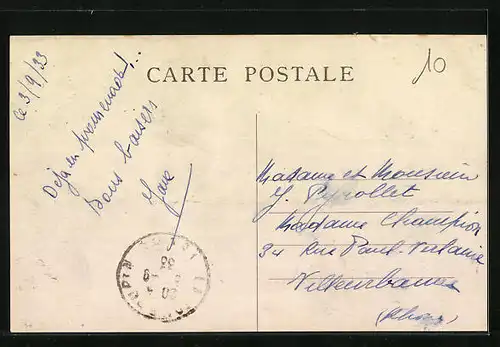 CARTE POSTALE
10
le 3/9/33
Déjà en promenade!..
Bons baisers
Madame et Monsieur
J. Peyrollet
Madame Champion
34 Rue Paul-Verlaine
Villeurbanne
(Rhône)